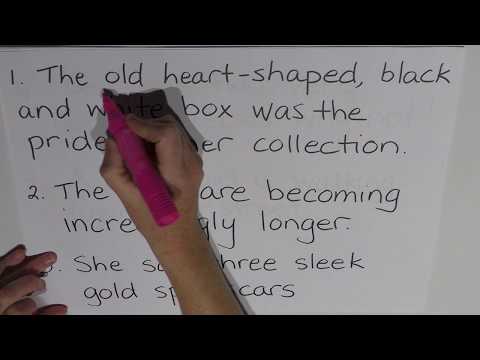 1. The old heart-shaped, black
and white box was the
pride her collection.
2. The are becoming
increasingly longer.
She three sleek
gold cars